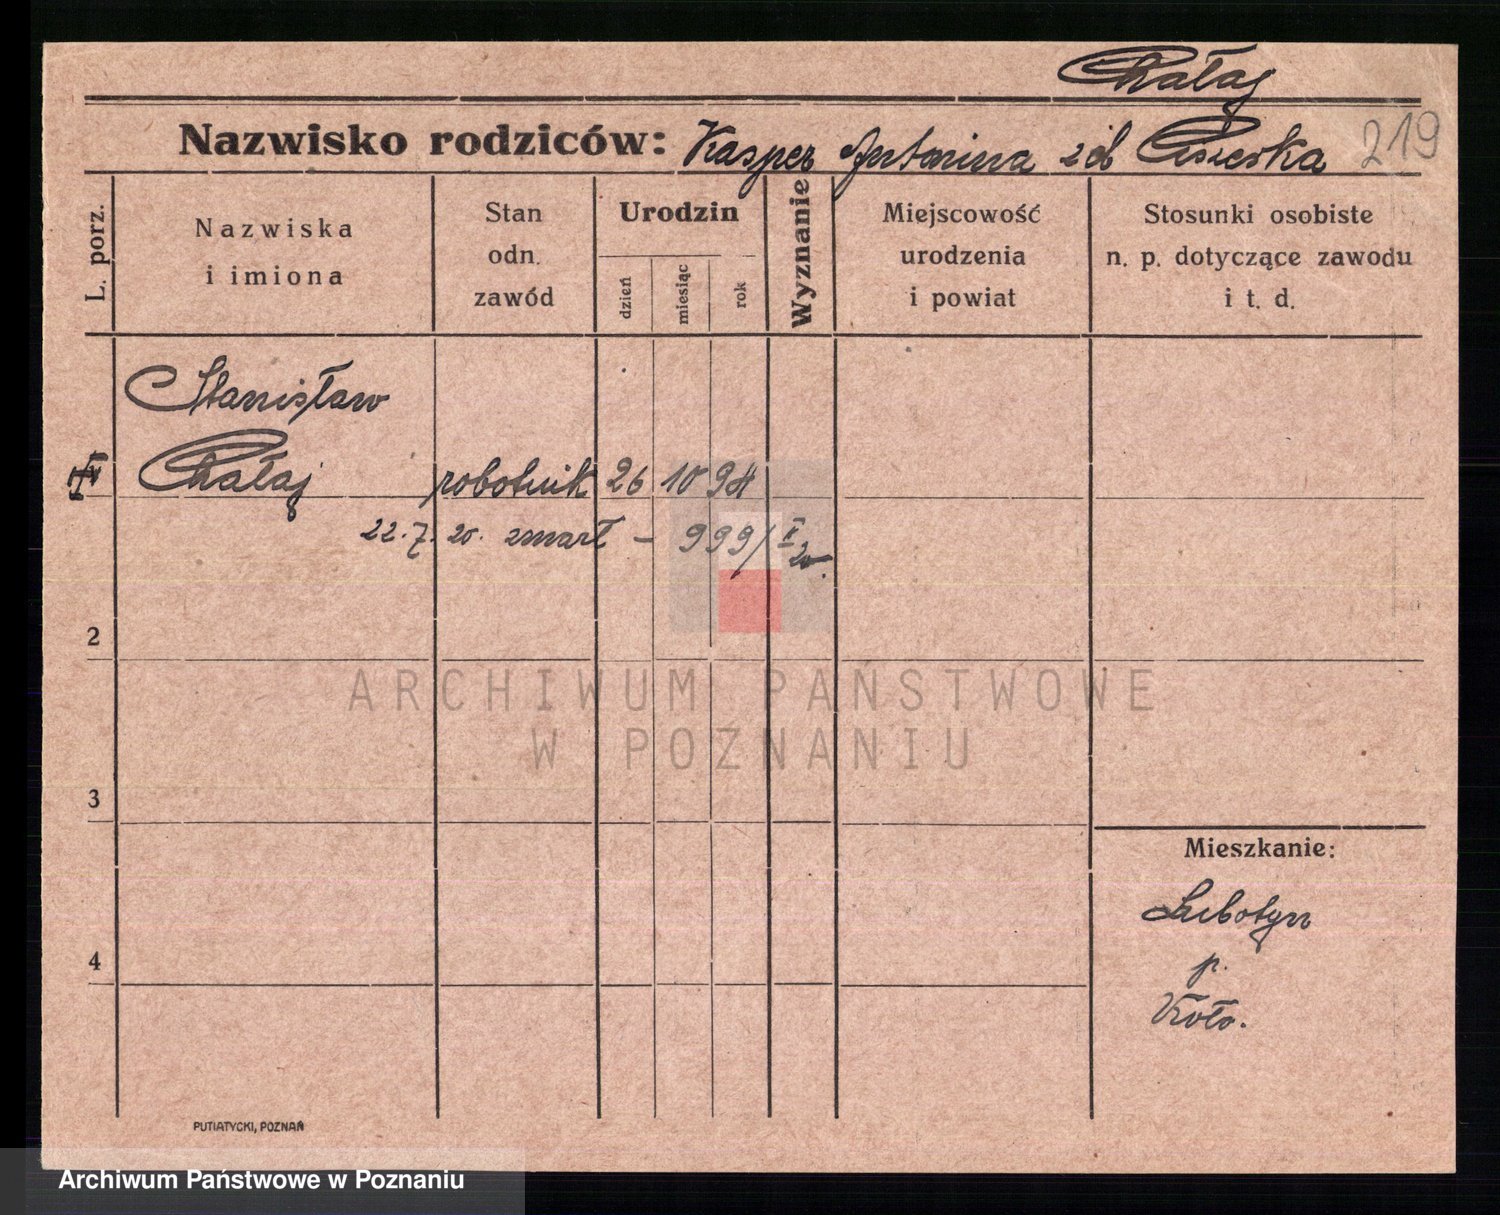 Chałaj
Nazwisko rodziców: Kasper Antonina
219
L. porz.
Nazwiska
i imiona
Stan
odn.
zawód
Urodzin
dzień
miesiąc
rok
Wyznanie
Miejscowość
urodzenia
i powiat
Stosunki osobiste
n. p. dotyczące zawodu
i t. d.
Stanisław
Chałaj robotnik 26 10 94
22. 7. 20. zmarł – 999/II 20.
2
3
4
Mieszkanie:
Lubotyn
p.
Koło.
ARCHIWUM PAŃSTWOWE
W POZNANIU
PUTIATYCKI, POZNAŃ
Archiwum Państwowe w Poznaniu